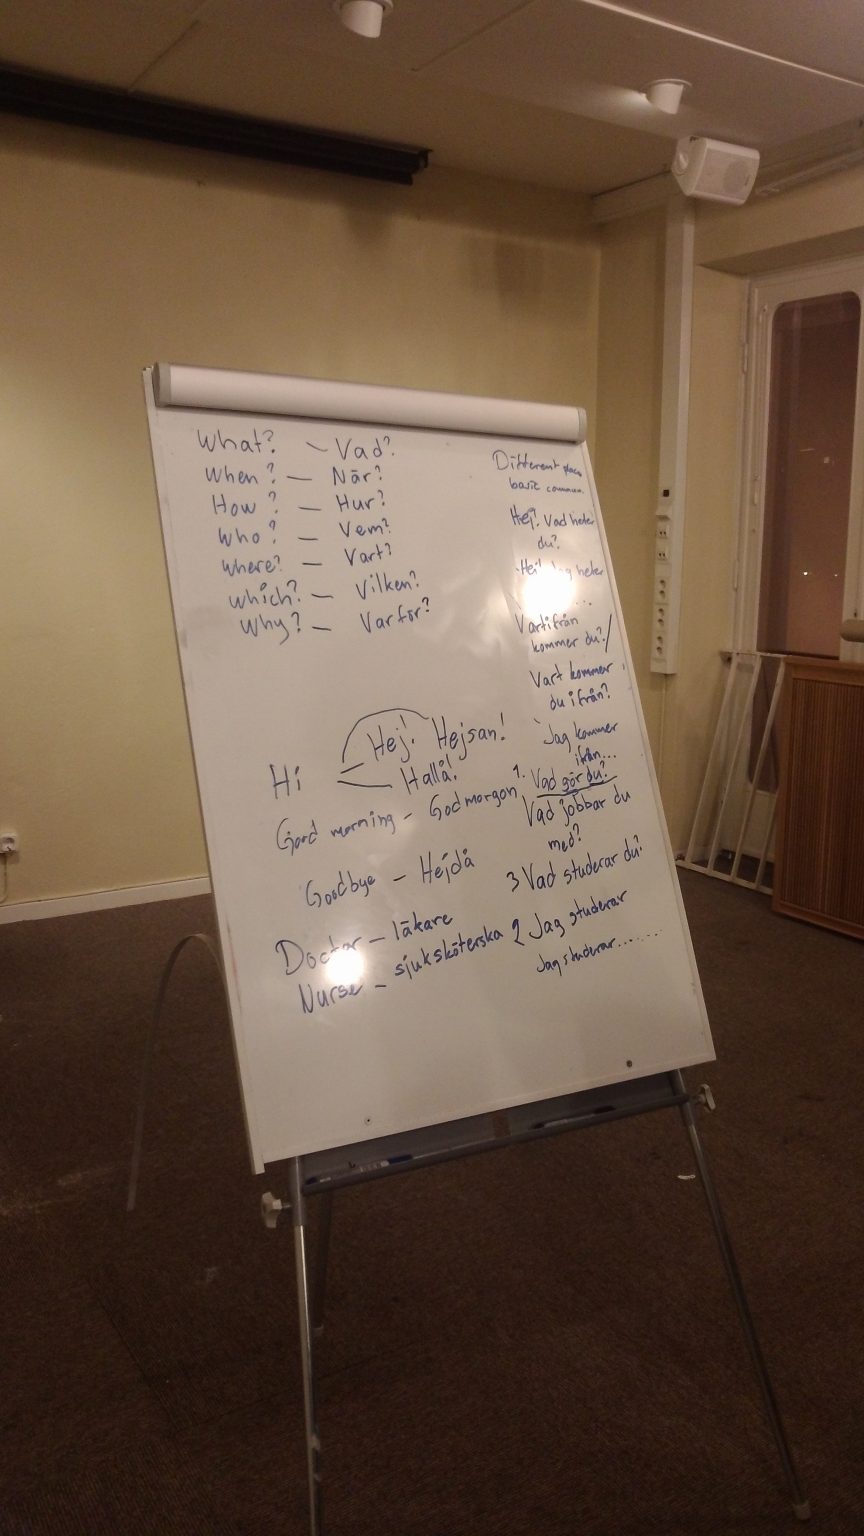 What? – Vad?
When? – När?
How? – Hur?
Who? – Vem?
where? – Vart?
which? – Vilken?
Why? – Varför?
Hi – Hej! Hejsan!
Hallå!
Good morning – Godmorgon
Goodbye – Hejdå
Doctor – läkare
Nurse – sjuksköterska
Different
basic commun.
Hej! Vad heter
du?
Hej! Jag heter
...
Vartifrån
kommer du?/
Vart kommer
du ifrån?
Jag kommer
ifrån...
1. Vad gör du?
Vad jobbar du
med?
3 Vad studerar du?
2 Jag studerar
Jag studerar........